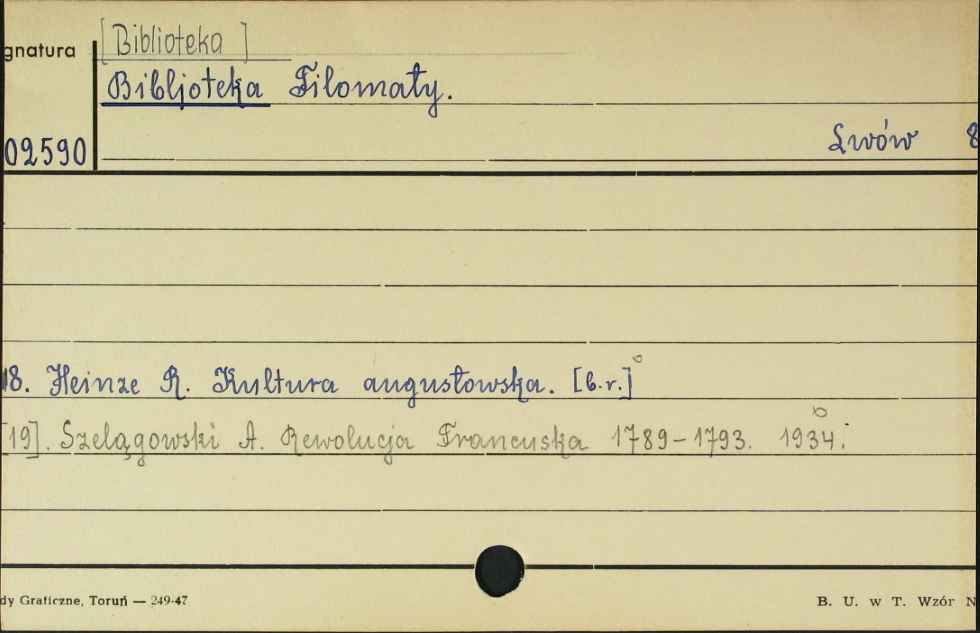 [Biblioteka]
gnatura
Bibljoteka Filomaty.
02590
Lwów 8
18. Heinze R. Kultura augustowska. [b.r.]
[19]. Szelągowski A. Rewolucja Francuska 1789-1793. 1934.
dy Graficzne, Toruń — 249-47
B. U. w T. Wzór N